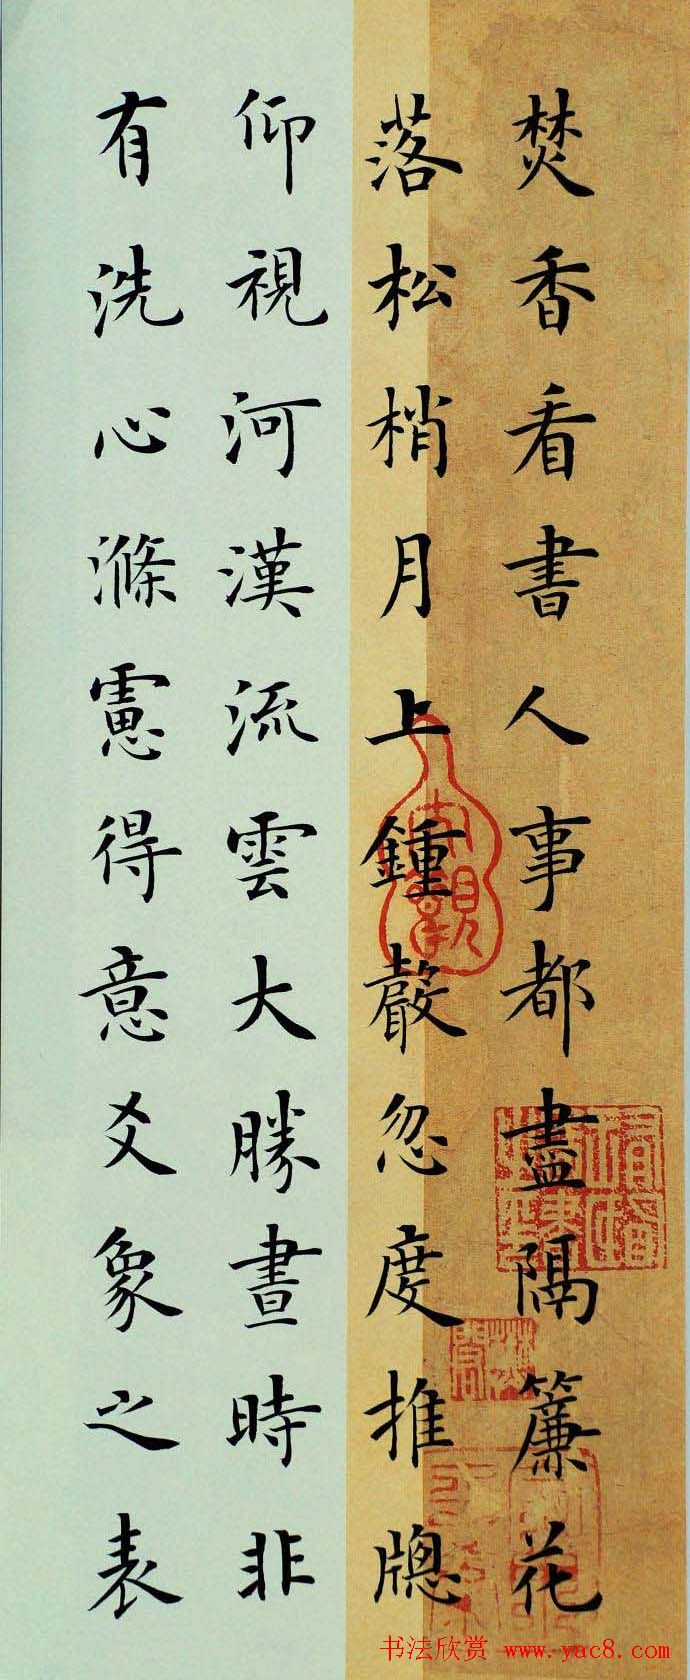 焚香看書人事都盡隔簾花
落松梢月上鍾聲忽度推牕
仰視河漢流雲大勝晝時非
有洗心滌慮得意爻象之表
书法欣赏 www.yac8.com